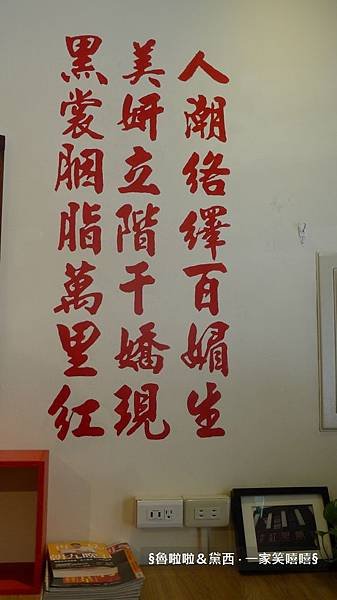 人潮络繹百媚生
美妍立階千嬌現
黑裳胭脂萬里紅
§魯啦啦&黛西．一家笑嘻嘻§